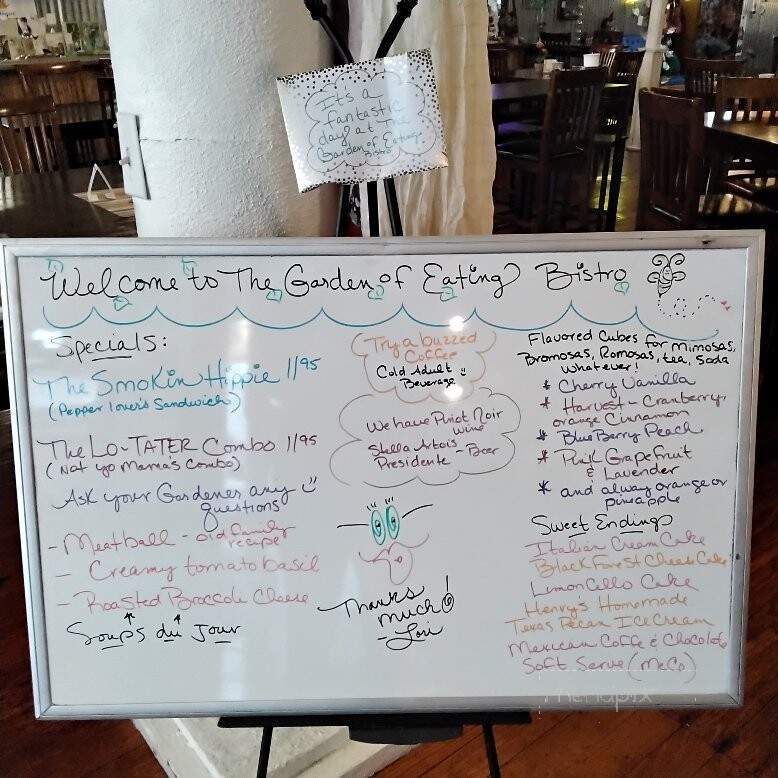 It's a
fantastic
day at The
Garden of Eating
Bistro
Welcome to The Garden of Eating Bistro
Specials:
The Smokin Hippie 11/95
(Pepper lover's Sandwich)
The Lo-TATER Combo 11/95
(Not yo Mama's Combo)
Ask your Gardener any
questions
- Meatball - old family
recipe
- Creamy tomato basil
- Roasted Broccoli Cheese
Soups du Jour
Try a buzzed
Coffee
Cold Adult
Beverage
We have Pinot Noir
Wine
Stella Artois
Presidente - Beer
Thanks
much!
- Lori
Flavored Cubes for mimosas,
Bromosas, Romosas, tea, Soda
whatever!
* Cherry Vanilla
* Harvest - Cranberry,
orange Cinnamon
* Blue Berry Peach
* Pink Grapefruit
& Lavender
* and alway orange or
pineapple
Sweet Endings
Italian Cream Cake
Black Forest Cheese Cake
LimonCello Cake
Henry's Homemade
Texas Pecan Ice Cream
Mexican Coffe & Chocolate
Soft Serve (MeCo)
menupix